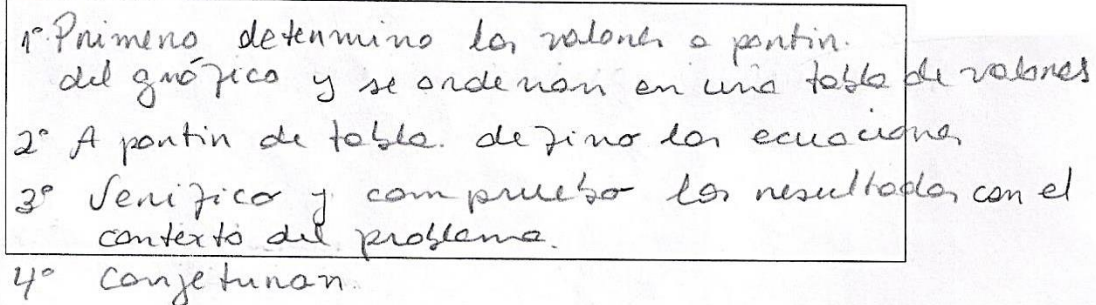 1º Primero determino los valores a partir
del gráfico y se ordenan en una tabla de valores
2º A partir de tabla. defino las ecuaciones
3º Verifico y compruebo los resultados con el
contexto del problema.
4º Conjeturar.